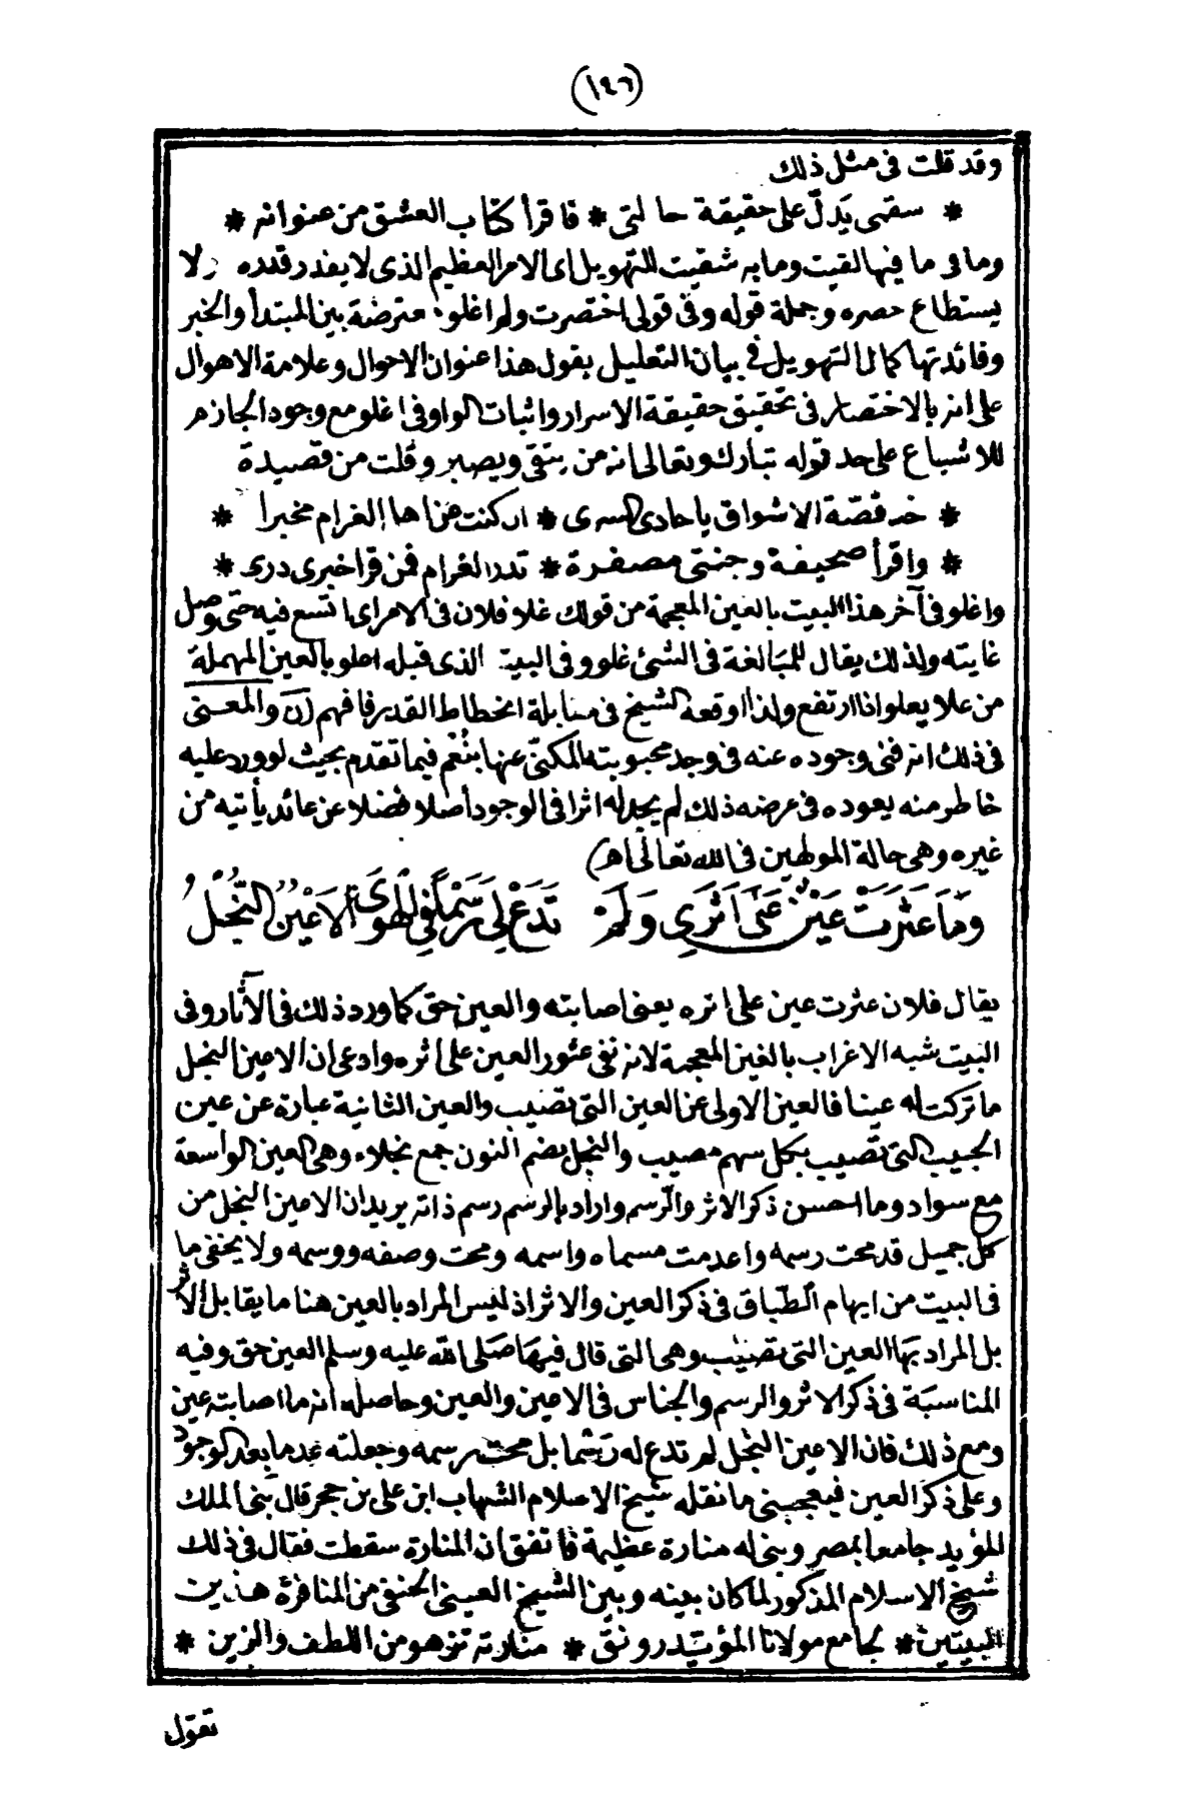 (١٤٦)
وقد قلت فى مثل ذلك
* سقمى يَدلّ على حقيقة حالتى * فاقرأ كتاب العشق من عنوانه *
وما فى ما فيها لقيت وما به شقيت للتهويل اى الامر العظيم الذى لا يقدر قدره ولا
يستطاع حصره وجملة قوله وفى قولى اختصرت ولم اغلو معترضة بين المبتدأ والخبر
وفائدتها كمال التهويل فى بيان التعليل بقول هذا عنوان الاحوال وعلامة الاهوال
على انه بالاختصار فى تحقيق حقيقة الاسرار واثبات الواو فى اغلو مع وجود الجازم
للاشباع على حد قوله تبارك وتعالى انه من يتقى ويصبر وقلت من قصيدة
* خذ قصّة الاشواق يا حادى السرى * ان كنت عن اهل الغرام مخبرا *
* واقرأ صحيفة وجنتى مصفرة * تدر الغرام فمن قرا خبرى درى *
واغلو فى آخر هذا البيت بالغين المعجمة من قولك غلا فلان فى الامر اى اتسع فيه حتى وصل
غايته ولذلك يقال للمبالغة فى الشئ غلو وفى البيت الذى قبله اعلو بالعين المهملة
من علا يعلو اذا ارتفع ولذا اوقعه الشيخ فى مقابلة انحطاط القدر فافهم (ن) والمعنى
فى ذلك انه فنى وجوده عنه فى وجد محبوبته المكنّى عنها بنُعْم فيما تقدم بحيث لو ورد عليه
خاطر منه يعوده فى عرضه ذلك لم يجد له اثرا فى الوجود أصلا فضلا عن عائد يأتيه من
غيره وهى حالة المولهين فى الله تعالى اه)
وَمَا عَثَرَتْ عَيْنٌ عَلَى اَثَرِى وَلَمْ تَدَعْ لِى رَسْمًا فِى الْهَوَى الْاَعْيُنُ النُّجْلُ
يقال فلان عثرت عين على اثره يعنى اصابته والعين حق كما ورد ذلك فى الآثار وفى
البيت شبه الاغراب بالغين المعجمة لانه نفى عثور العين على اثره وادعى ان الاعين النجل
ما تركت له عينا فالعين الاولى عن العين التى تصيب والعين الثانية عبارة عن عين
الحبيب التى تصيب بكل سهم مصيب والنجل بضم النون جمع نجلاء وهى العين الواسعة
مع سواد وما احسن ذكر الاثر والرسم واراد بالرسم رسم ذاته يريد ان الاعين النجل من
كل جميل قد محت رسمه واعدمت مسماه واسمه ومحت وصفه ووسمه ولا يخفى ما
فى البيت من ايهام الطباق فى ذكر العين والاثر اذ ليس المراد بالعين هنا ما يقابل الاثر
بل المراد بها العين التى تصيب وهى التى قال فيها صَلى الله عليه وسلم العين حق وفيه
المناسبَة فى ذكر الاثر والرسم والجناس فى الاعين والعين وحاصله انه ما اصابته عين
ومع ذلك فان الاعين النجل لم تدع له رَسْما بل محت رسمه وجعلته عدما بعد الوجود
وعلى ذكر العين فيعجبنى ما نقله شيخ الاسلام الشهاب ابن على بن حجر قال بَنى الملك
المؤيد جامعا بمصر وبنى له منارة عظيمة فاتفق ان المنارة سقطت فقال فى ذلك
شيخ الاسلام المذكور لما كان بينه وبين الشيخ العينى الحنفى من المنافرة هذين
البيتين * لجامع مولانا المؤيّد رونق * منارته تزهو من اللطف والزين *
تقول